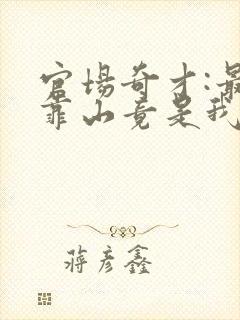 官场奇才:最
靠山竟是我
蒋彦鑫